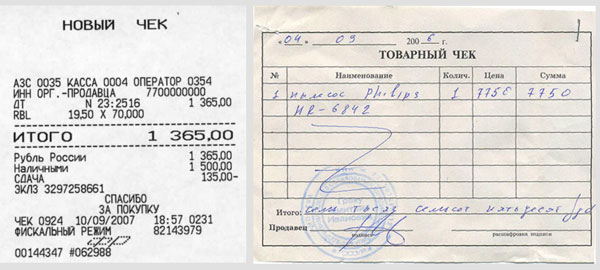 НОВЫЙ ЧЕК
АЗС 0035 КАССА 0004 ОПЕРАТОР 0354
ИНН ОРГ.-ПРОДАВЦА 7700000000
ДТ N 23:2516 1 365,00
RBL 19,50 X 70,000
ИТОГО 1 365,00
Рубль России 1 365,00
Наличными 1 500,00
СДАЧА 135,00-
ЭКЛЗ 3297258661
СПАСИБО
ЗА ПОКУПКУ
ЧЕК 0924 10/09/2007 18:57 0231
ФИСКАЛЬНЫЙ РЕЖИМ 82143979
00144347 #062988
"04" 09 2006 г.
ТОВАРНЫЙ ЧЕК
№ Наименование Колич. Цена Сумма
1 пылесос Philips 1 7750 7750
HR-6842
Итого: семь тысяч семьсот пятьдесят руб
Продавец
подпись расшифровка подписи